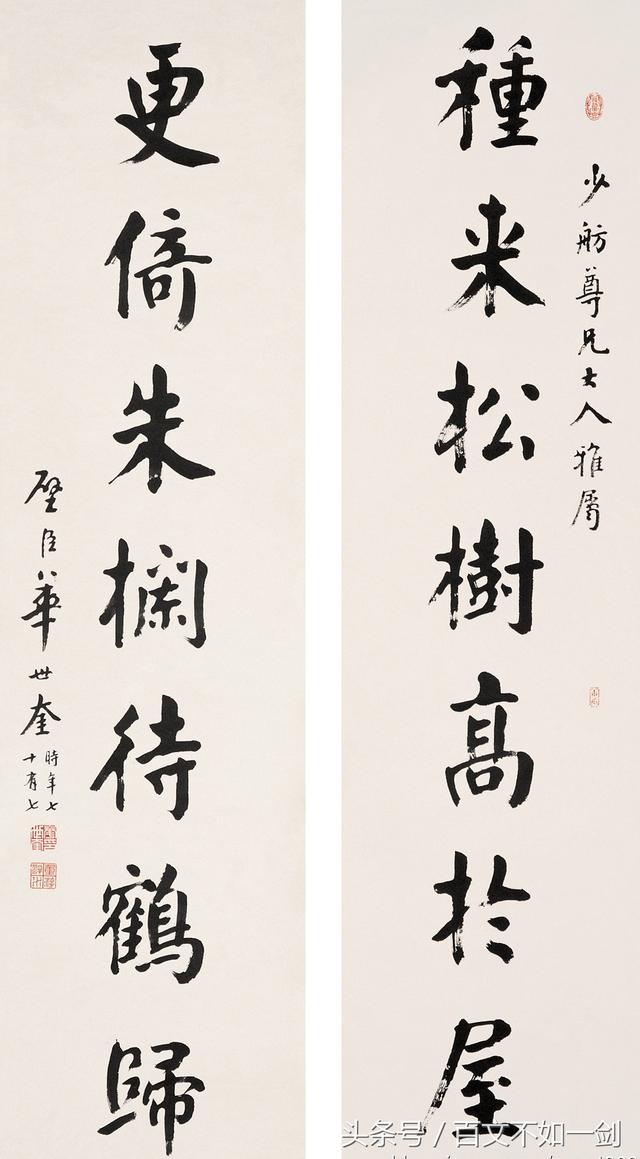 少舫尊兄大人雅屬
種来松樹高於屋
更倚朱欄待鶴歸
壁臣華世奎
時年七
十有七
头条号 / 百文不如一剑